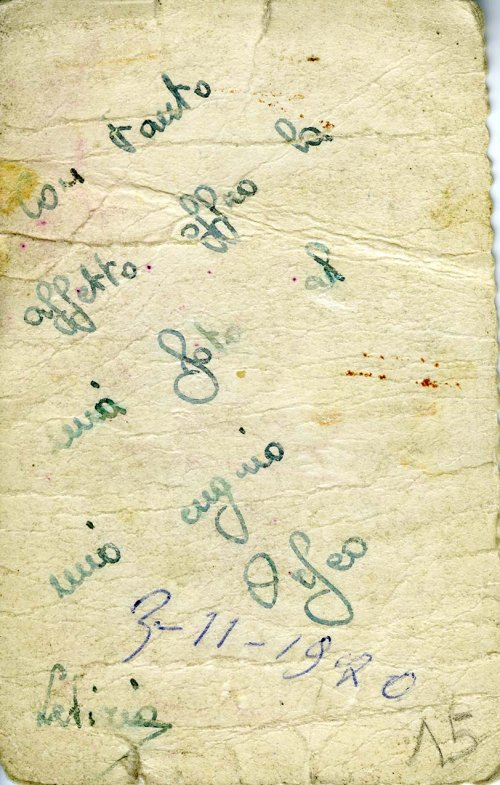 con tanto
affetto offro la
mia foto al
mio cugino
3-11-1920
Letizia
15